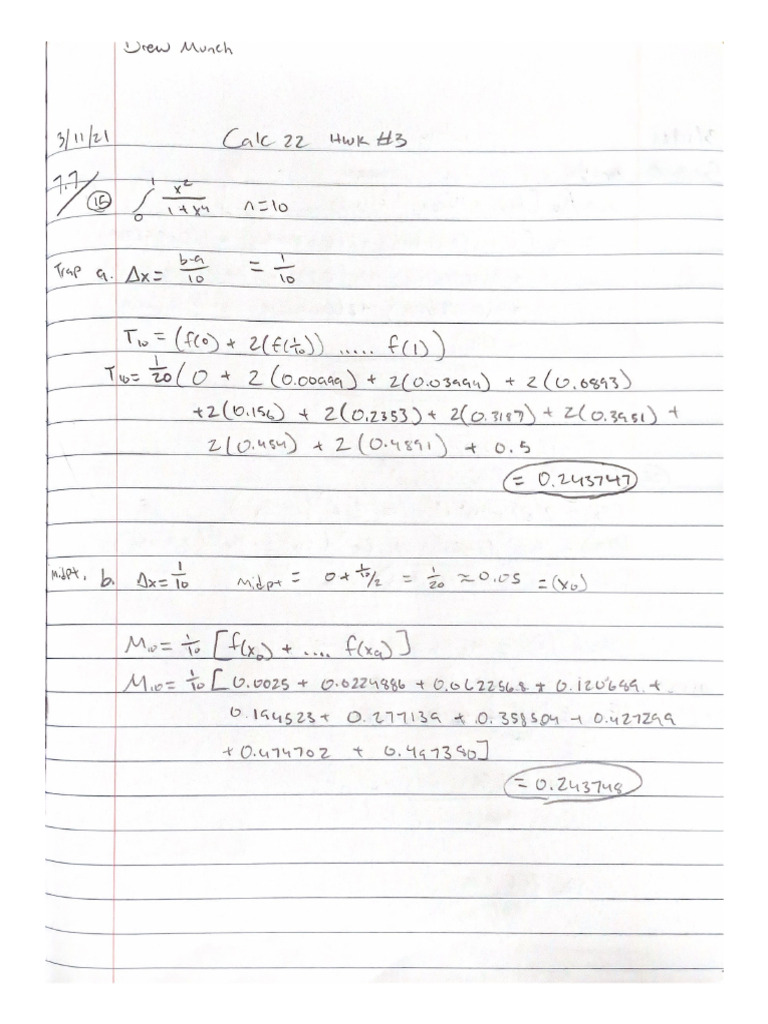 Drew Munch
3/11/21 Calc 22 Hwk #3
7.7/ 15 ∫₀¹ x²/(1+x⁴) n=10
Trap a. Δx = b-a/10 = 1/10
T₁₀ = (f(0) + 2(f(1/10)) ..... f(1))
T₁₀ = 1/20 (0 + 2(0.00999) + 2(0.03994) + 2(0.0893)
+2(0.156) + 2(0.2353) + 2(0.3187) + 2(0.3951) +
2(0.454) + 2(0.4891) + 0.5
= 0.243747
Midpt. b. Δx = 1/10 Midpt = 0 + 1/10/2 = 1/20 ≈ 0.05 = (x₀)
M₁₀ = 1/10 [f(x₀) + .... f(x₉)]
M₁₀ = 1/10 [0.0025 + 0.0224886 + 0.0622568 + 0.120689 +
0.194523 + 0.277139 + 0.358504 + 0.427299
+ 0.474702 + 0.497390]
= 0.243748